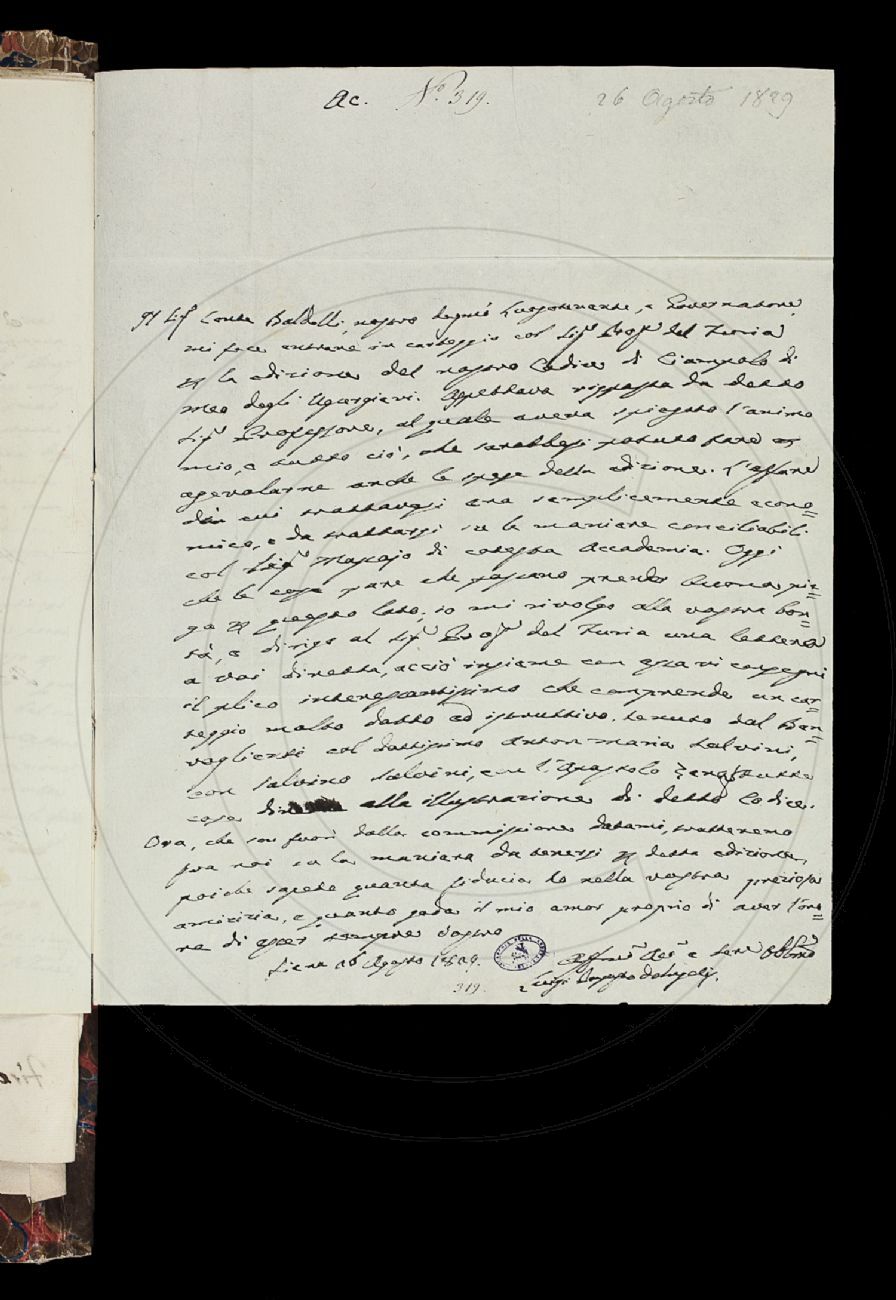 Ac. N.º 319. 26 Agosto 1829
Il Sig.r Conte Baldelli, nostro degno Luogotenente, e Governatore,
mi fece entrare in carteggio col Sig.r Prof.r del Furia
p la edizione del nostro Codice di Ciampolo di
Meo degli Ugurgieri. Aspettava risposta da detto
Sig.r Professore, al quale aveva spiegato l'animo
mio, e tutto ciò, che sarebbesi potuto fare p
agevolarne anche le spese della edizione. L'affare
di cui trattavasi era semplicemente econo=
mico, e da trattarsi su le maniere conciliabili
col Sig.r Massajo di cotesta Accademia. Oggi
che le cose pare che possano prender buona pie=
ga p questo lato, io mi rivolgo alla vostra bon=
tà, e dirigo al Sig.r Prof.r del Furia una lettera
a voi diretta, acciò insieme con essa vi consegni
il plico interessantissimo che comprende un car=
teggio molto dotto ed istruttivo tenuto dal Ben=
voglienti col dottissimo Anton-maria Salvini,
con Salvino Salvini, con l'Apostolo Zeno
cose alla illustrazione di detto Codice.
Ora, che son fuori dalla commissione datami, tratteremo
fra noi su la maniera da tenersi p detta edizione,
poiche sapete quanta fiducia ho nella vostra preziosa
amicizia, e quanto goda il mio amor proprio di aver l'ono=
re di esser sempre vostro
Siena 26 Agosto 1829.
Affmo e Obblmo
Luigi de Angelis.
319.